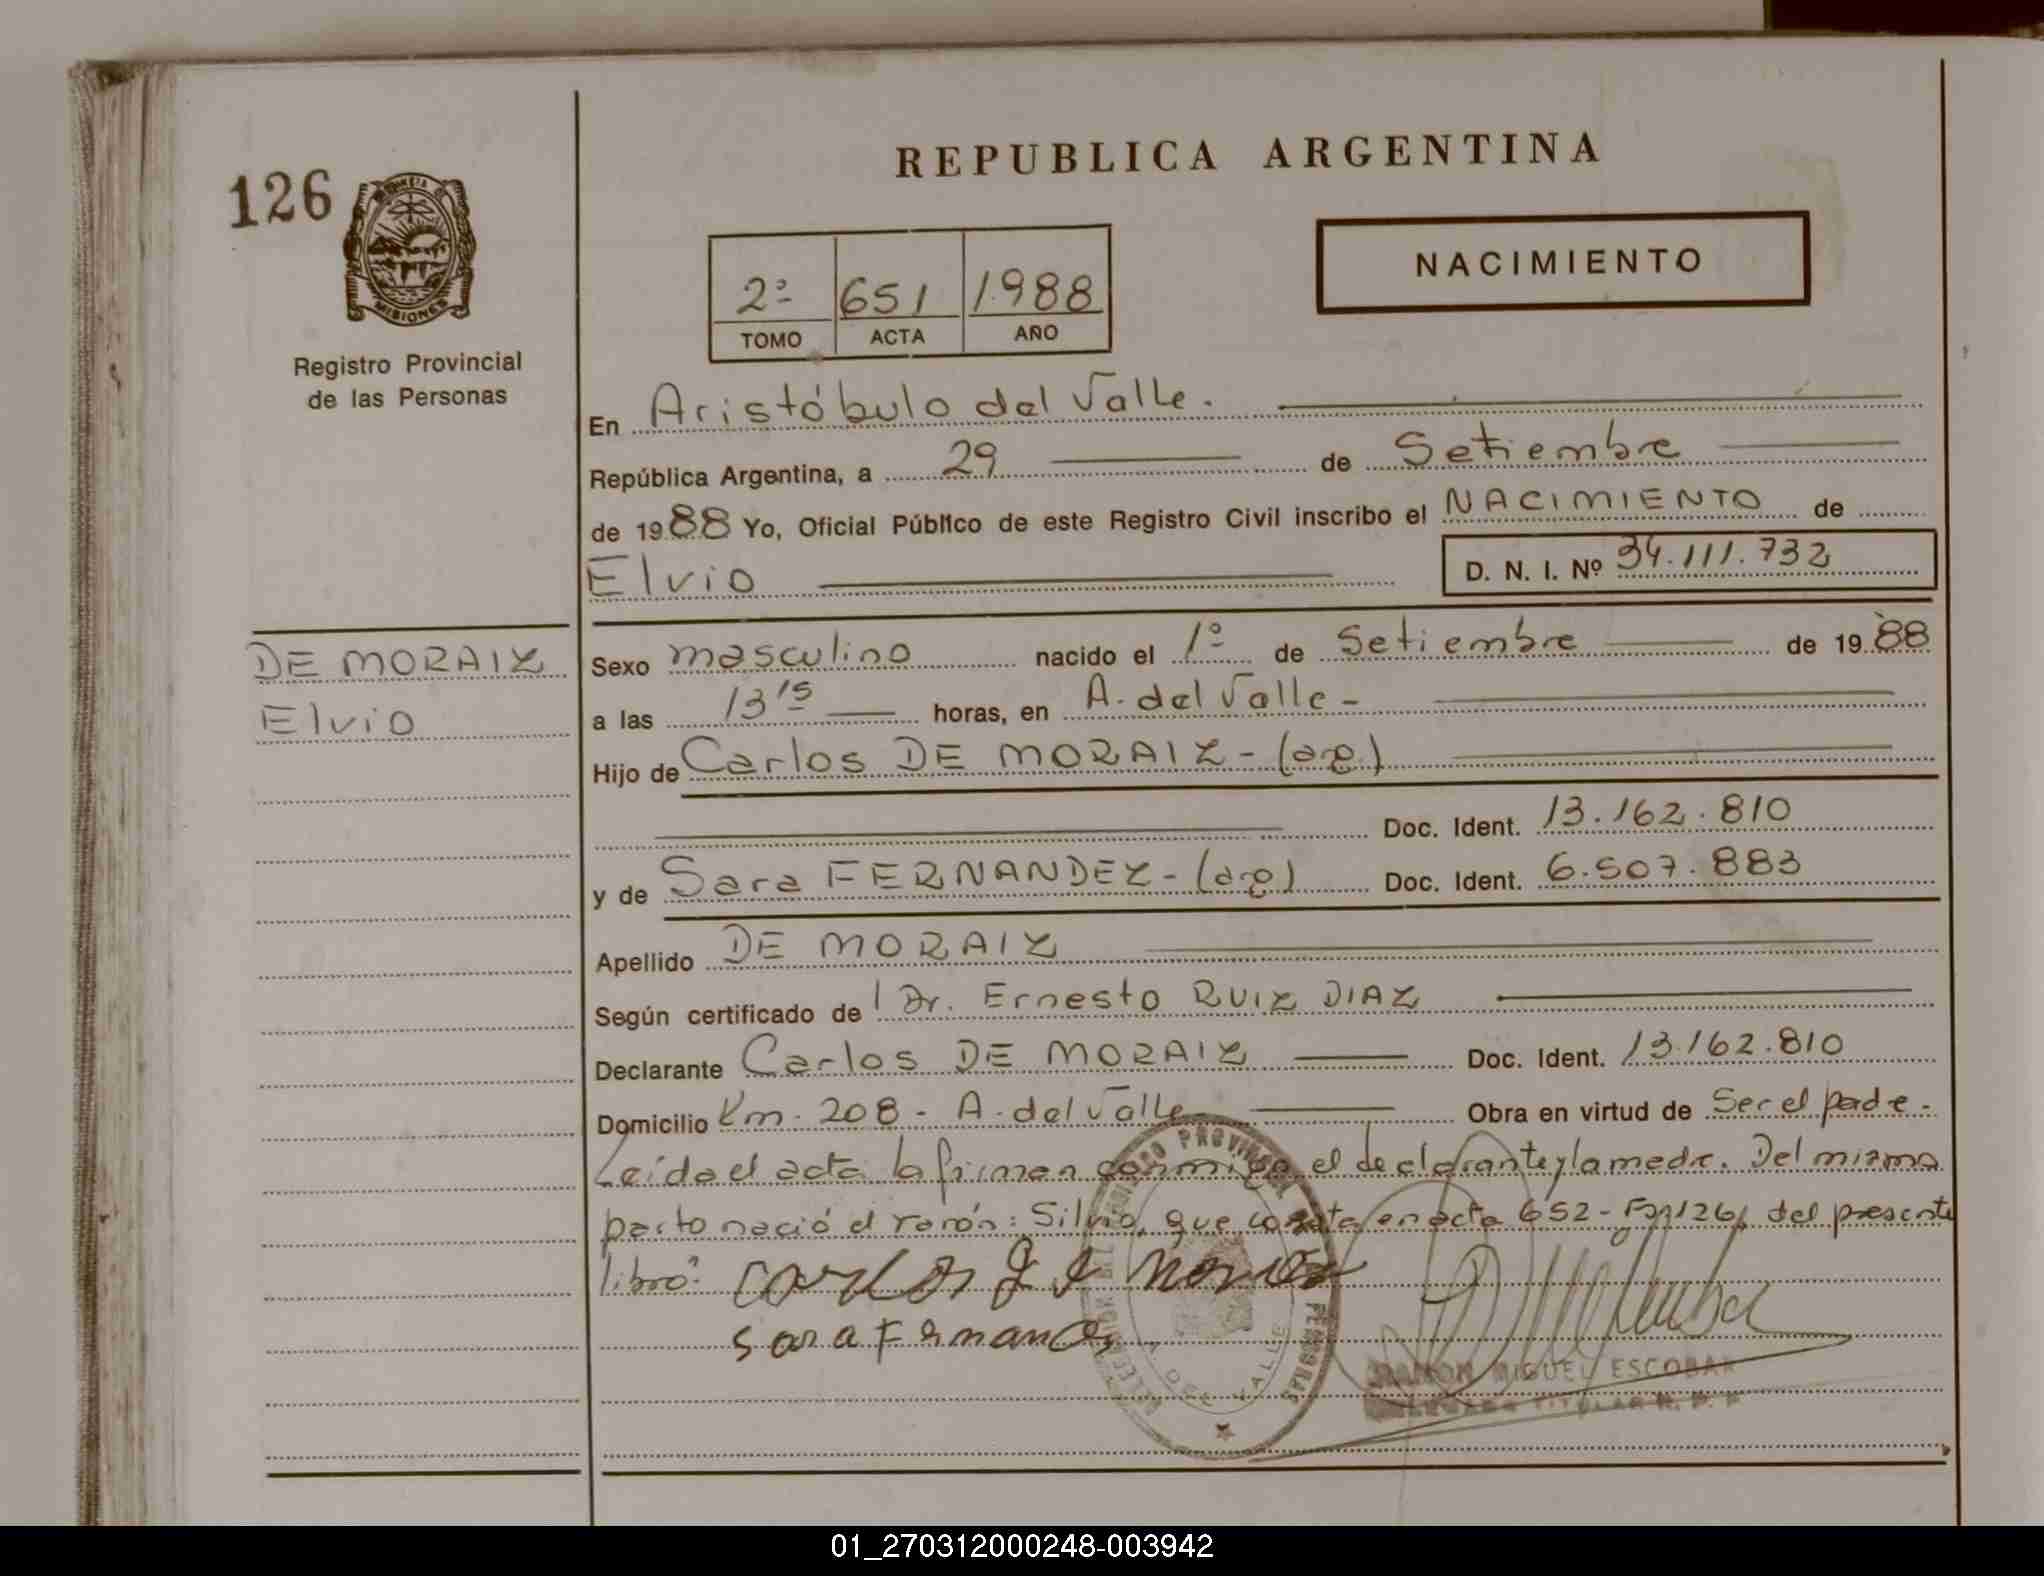 REPUBLICA ARGENTINA
126
NACIMIENTO
2º 651 1988
TOMO ACTA AÑO
MISIONES
Registro Provincial
de las Personas
En Aristóbulo del Valle.
República Argentina, a 29 de Setiembre
de 1988 Yo, Oficial Público de este Registro Civil inscribo el NACIMIENTO de
Elvio D. N. I. Nº 34.111.732
DE MORAIZ
Elvio
Sexo masculino nacido el 1º de Setiembre de 1988
a las 13 15 horas, en A. del Valle -
Hijo de Carlos DE MORAIZ - (arg.)
Doc. Ident. 13.162.810
y de Sara FERNANDEZ - (arg) Doc. Ident. 6.507.883
Apellido DE MORAIZ
Según certificado de Dr. Ernesto RUIZ DIAZ
Declarante Carlos DE MORAIZ Doc. Ident. 13.162.810
Domicilio Km. 208 - A. del Valle Obra en virtud de Ser el padre.
Leída el acta la firman conmigo el declarante y la madre. Del mismo
parto nació el varón: Silvio, que consta en acta 652 - 126, del presente
libro.
Sara
RAMON MIGUEL ESCOBAR
TITULAR R. P. P.
DEL VALLE
01_270312000248-003942